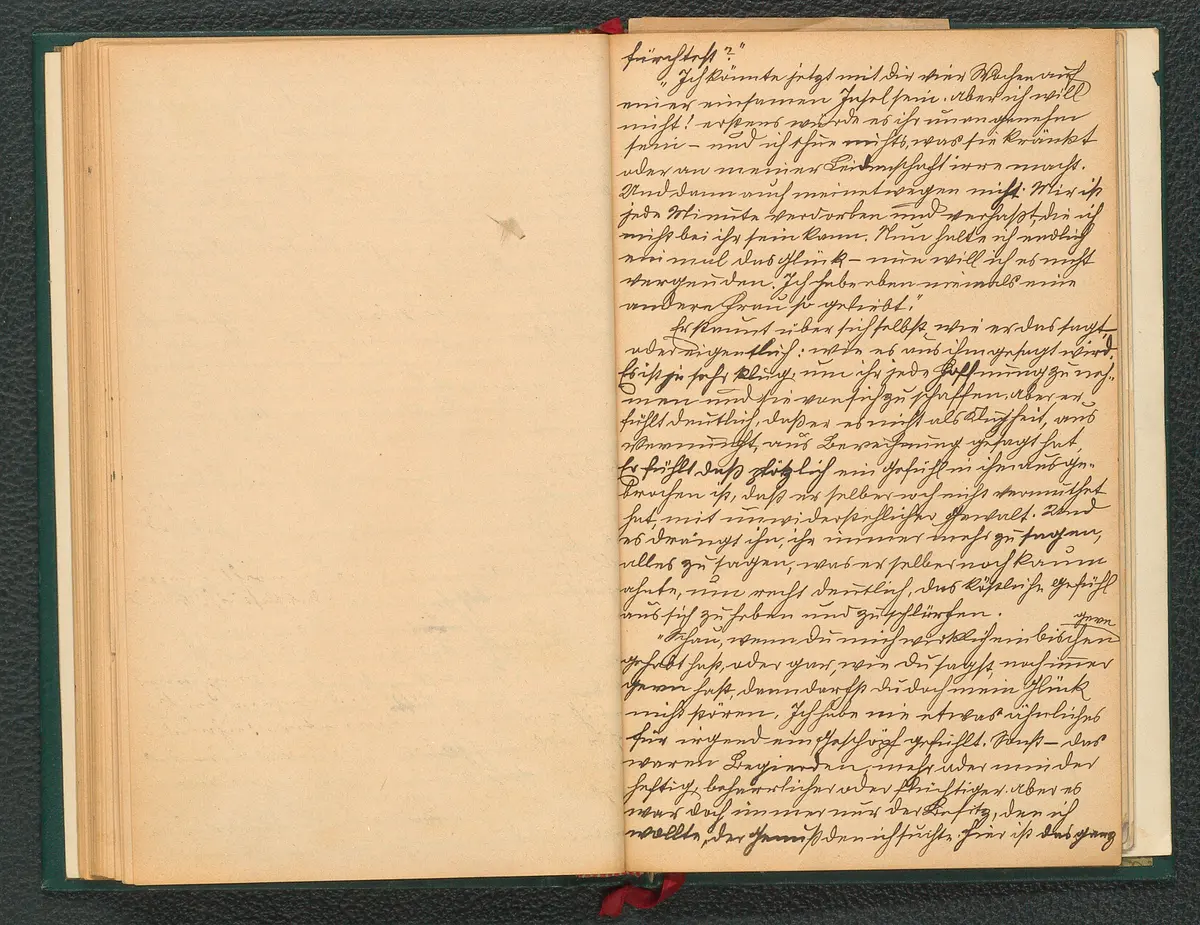 fürchtest?"
"Ich könnte jetzt mit dir vier Wochen auf
einer einsamen Insel sein. Aber ich will
nicht! erstens würde es ihr unangenehm
sein – und ich thue nichts, was sie kränkt
oder an meiner Leidenschaft irre macht.
Und dann auch meinetwegen nicht. Mir ist
jede Minute verdorben und verhaßt, die ich
nicht bei ihr sein kann. Nun halte ich endlich
einmal das Glück – nun will ich es nicht
vergeuden. Ich habe eben niemals eine
andere Frau so geliebt."
Er staunt über sich selbst, wie er das sagt,
oder eigentlich: wie es aus ihm gesagt wird.
Es ist ja sehr klug, um ihr jede Hoffnung zu neh-
men und sie von sich zu schaffen. Aber er
fühlt deutlich, daß er es nicht als Klugheit, aus
Vernunft, aus Berechnung gesagt hat,
Er fühlt daß plötzlich ein Gefühl in ihm ausge-
brochen ist, daß er selber noch nicht vermuthet
hat, mit unwiderstehlicher Gewalt. Und
es drängt ihn, ihr immer mehr zu sagen,
alles zu sagen, was er selber noch kaum
ahnte, um recht deutlich, das köstliche Gefühl
aus sich zu heben und zu schlürfen.
"Schau, wenn du mich wirklich ein bischen gern
gehabt hast, oder gar, wie du sagst, noch immer
gern hast, dann darfst du doch mein Glück
nicht stören. Ich habe nie etwas ähnliches
für irgend ein Geschöpf gefühlt. Sonst – das
waren Begierden, mehr oder minder
heftig, beharrlicher oder flüchtiger aber es
war doch immer nur der Besitz, den ich
wollte, der Genuß den ich suchte. Hier ist das ganz